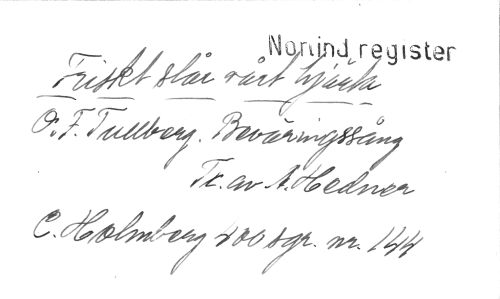 Norlind register
Friskt slår vårt hjärta
O. F. Tullberg. Beväringssång
Tr. av A. Hedner
C. Holmberg 200 sgr. nr. 144